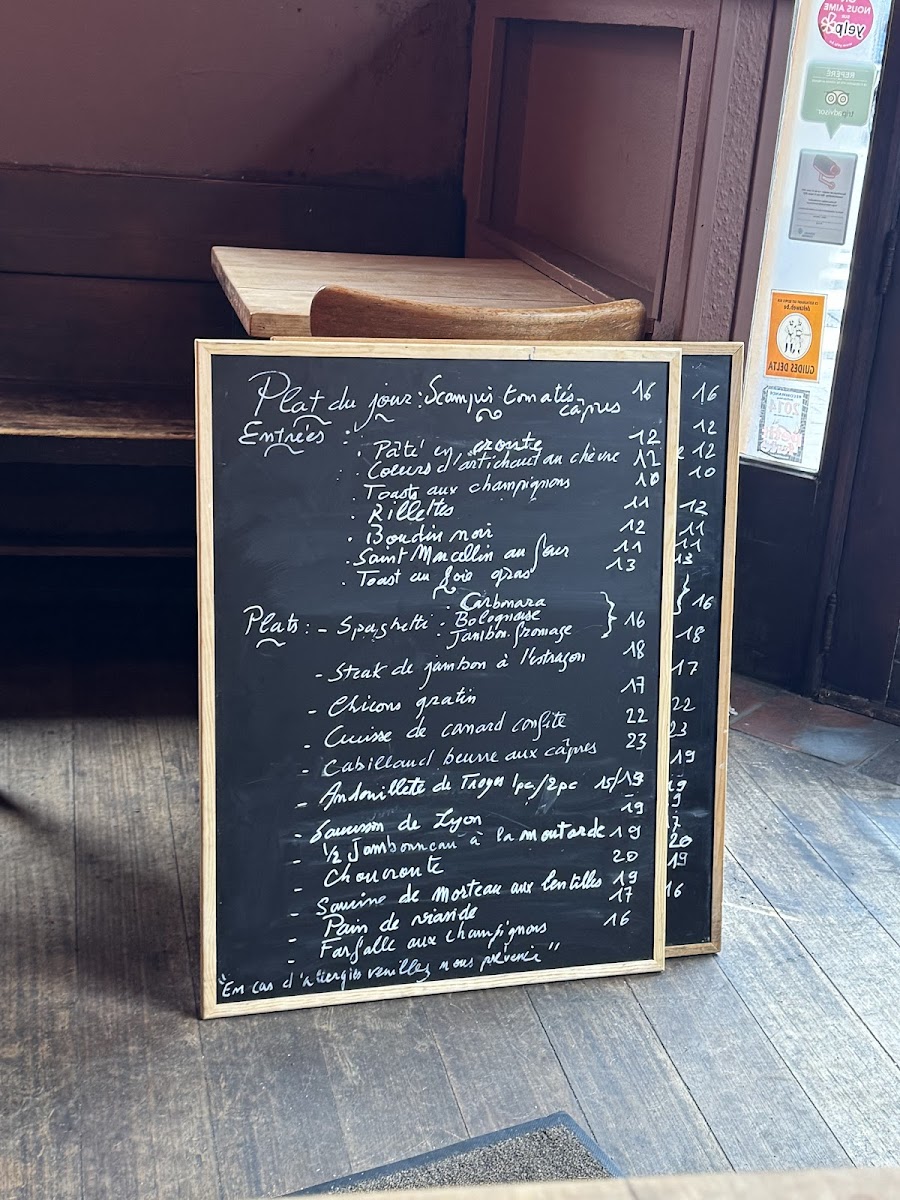 Plat du jour: Scampis tomatés 16
câpres
Entrées :
. Pâté en croute 12
. Coeurs d'artichaut au chèvre 12
. Toasts aux champignons 10
. Rillettes 11
. Boudin noir 12
. Saint Marcellin au four 11
. Toast au foie gras 13
. Carbonara
Plats: - Spaghetti . Bolognaise } 16
. Jambon fromage
- Steak de jambon à l'estragon 18
- Chicons gratin 17
- Cuisse de canard confite 22
- Cabillaud beurre aux câpres 23
- Andouillete de Troyes 1pc/2pc 15/19
- Saucisson de Lyon 19
- 1/2 Jambonneau à la moutarde 19
- Choucroute 20
- Saucisse de Morteau aux lentilles 19
- Pain de viande 17
- Farfalle aux champignons 16
"En cas d'allergies veuillez nous prévenir"
16
12
12
10
12
11
11
13
} 16
18
17
22
23
19
19
19
17
20
19
16
NOUS AIME
yelp
REPÉRÉ
tripadvisor
GUIDES DELTA
2014